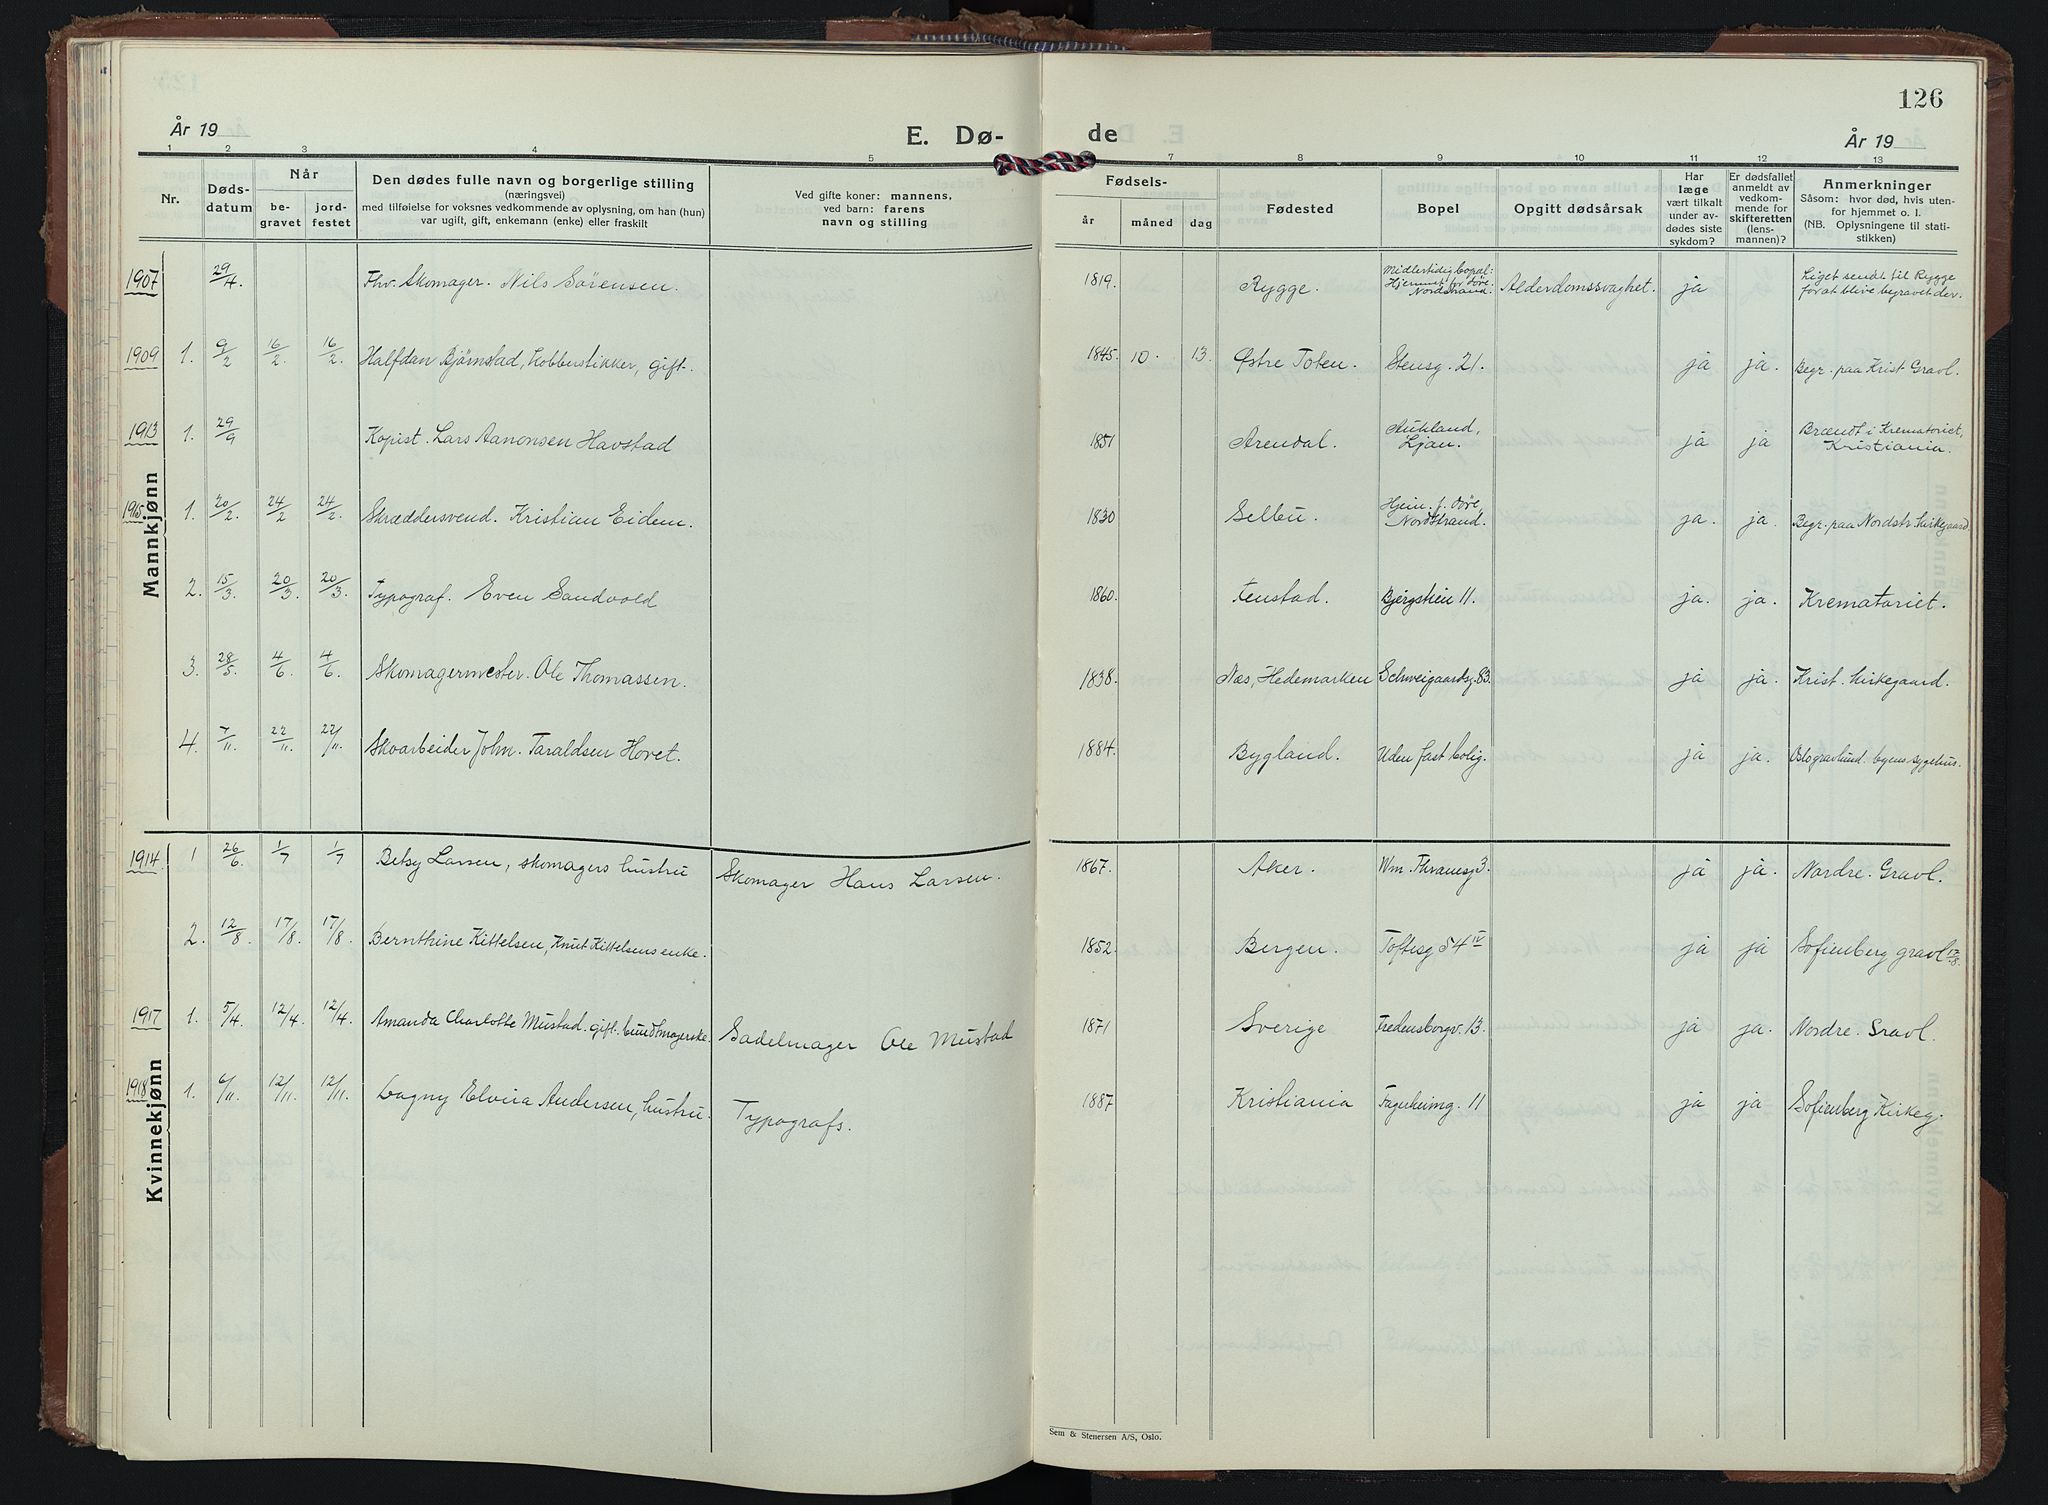 126
År 19
E. Dø-
de
År 19
1 2 3 4 5 7 8 9 10 11 12 13
Nr.
Døds-
datum
Når
be-
gravet
jord-
festet
Den dødes fulle navn og borgerlige stilling
(næringsvei)
med tilføielse for voksnes vedkommende av oplysning, om han (hun)
var ugift, gift, enkemann (enke) eller fraskilt
Ved gifte koner: mannens,
ved barn: farens
navn og stilling
Fødsels-
år måned dag
Fødested
Bopel
Opgitt dødsårsak
Har
læge
vært tilkalt
under av-
dødes siste
sykdom?
Er dødsfallet
anmeldt av
vedkom-
mende for
skifteretten
(lens-
mannen)?
Anmerkninger
Såsom: hvor død, hvis uten-
for hjemmet o. l.
(NB. Oplysningene til stati-
stikken)
Mannkjønn
1907 29/4. Fhv. Skomager. Nils Sörensen. 1819. Rygge. Midlertidig bopæl: Hjemmet for døve Nordstrand. Alderdomssvaghet. ja Liget sendt til Rygge for at blive begravet der.
1909 1. 9/2 16/2. 16/2. Halfdan Bjørnstad, kobberstikker, gift. 1845. 10. 13. Østre Toten. Stensg. 21. ja ja. Begr. paa Krist Gravl.
1913 1. 29/9 Kopist. Lars Aanonsen Havstad 1851 Arendal. Aukland, Ljan. ja ja Brændt i Krematoriet, Kristiania.
1915 1. 20/2. 24/2 24/2. Skræddersvend. Kristian Eidem. 1830 Selbu. Hjem. f. døve, Nordstrand. ja. ja. Begr. paa Nordstr. kirkegaard
2. 15/3. 20/3. 20/3. Typograf. Even Sandvold 1860. Bjergstien 11. ja. ja. Krematoriet.
3. 28/5. 4/6. 4/6. Skomagermester. Ole Thomassen. 1838. Næs, Hedemarken Schweigaardsg. 83. ja ja. Krist. kirkegaard.
4. 7/11. 22/11. 22/11. Skoarbeider John. Taraldsen Hovet. 1884. Bygland. Uden fast bolig. ja ja. Oslo gravlund. byens sygehus.
Kvinnekjønn
1914 1 26/6. 1/7 1/7 Betsy Larsen, skomagers hustru Skomager Hans Larsen. 1867. Aker. Wm. Thranesg 3. ja ja. Nordre. Gravl.
2. 12/8. 17/8. 17/8. Bernthine Kittelsen, Knut Kittelsens enke. 1852. Bergen. Toftesg 54 IV ja ja Sofienberg gravl 17/8.
1917 1. 5/4. 12/4. 12/4. Amanda Charlotte Mustad. gift. bundtmagerske. Sadelmager Ole Mustad 1871 Sverige Fredensborgv. 13. ja ja. Nordre. Gravl.
1918 1. 6/11. 12/11. 12/11. Dagny Elvira Andersen, hustru. Typografs. 1887 Kristiania Fagerheimg. 11 ja ja Sofienberg Kirkeg.
Sem & Stenersen A/S, Oslo.